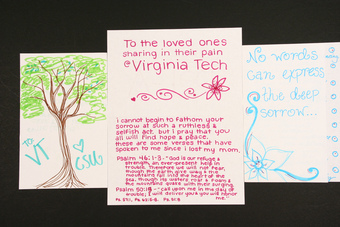 To
VT
CSUB
To the loved ones
sharing in their pain
@ Virginia Tech
I cannot begin to fathom your
sorrow at such a ruthless &
selfish act, but I pray that you
all will find hope & peace.
these are some verses that have
spoken to me since I lost my mom.
Psalm 46:1-3 - "God is our refuge &
strength, an ever-present help in
trouble. Therefore we will not fear,
though the earth give way & the
mountains fall into the heart of the
sea, though its waters roar & foam &
the mountains quake with their surging.
Psalm 50:15 - "call upon me in the day of
trouble; I will deliver you & you will honor
me."
No words
can express
the deep
sorrow...